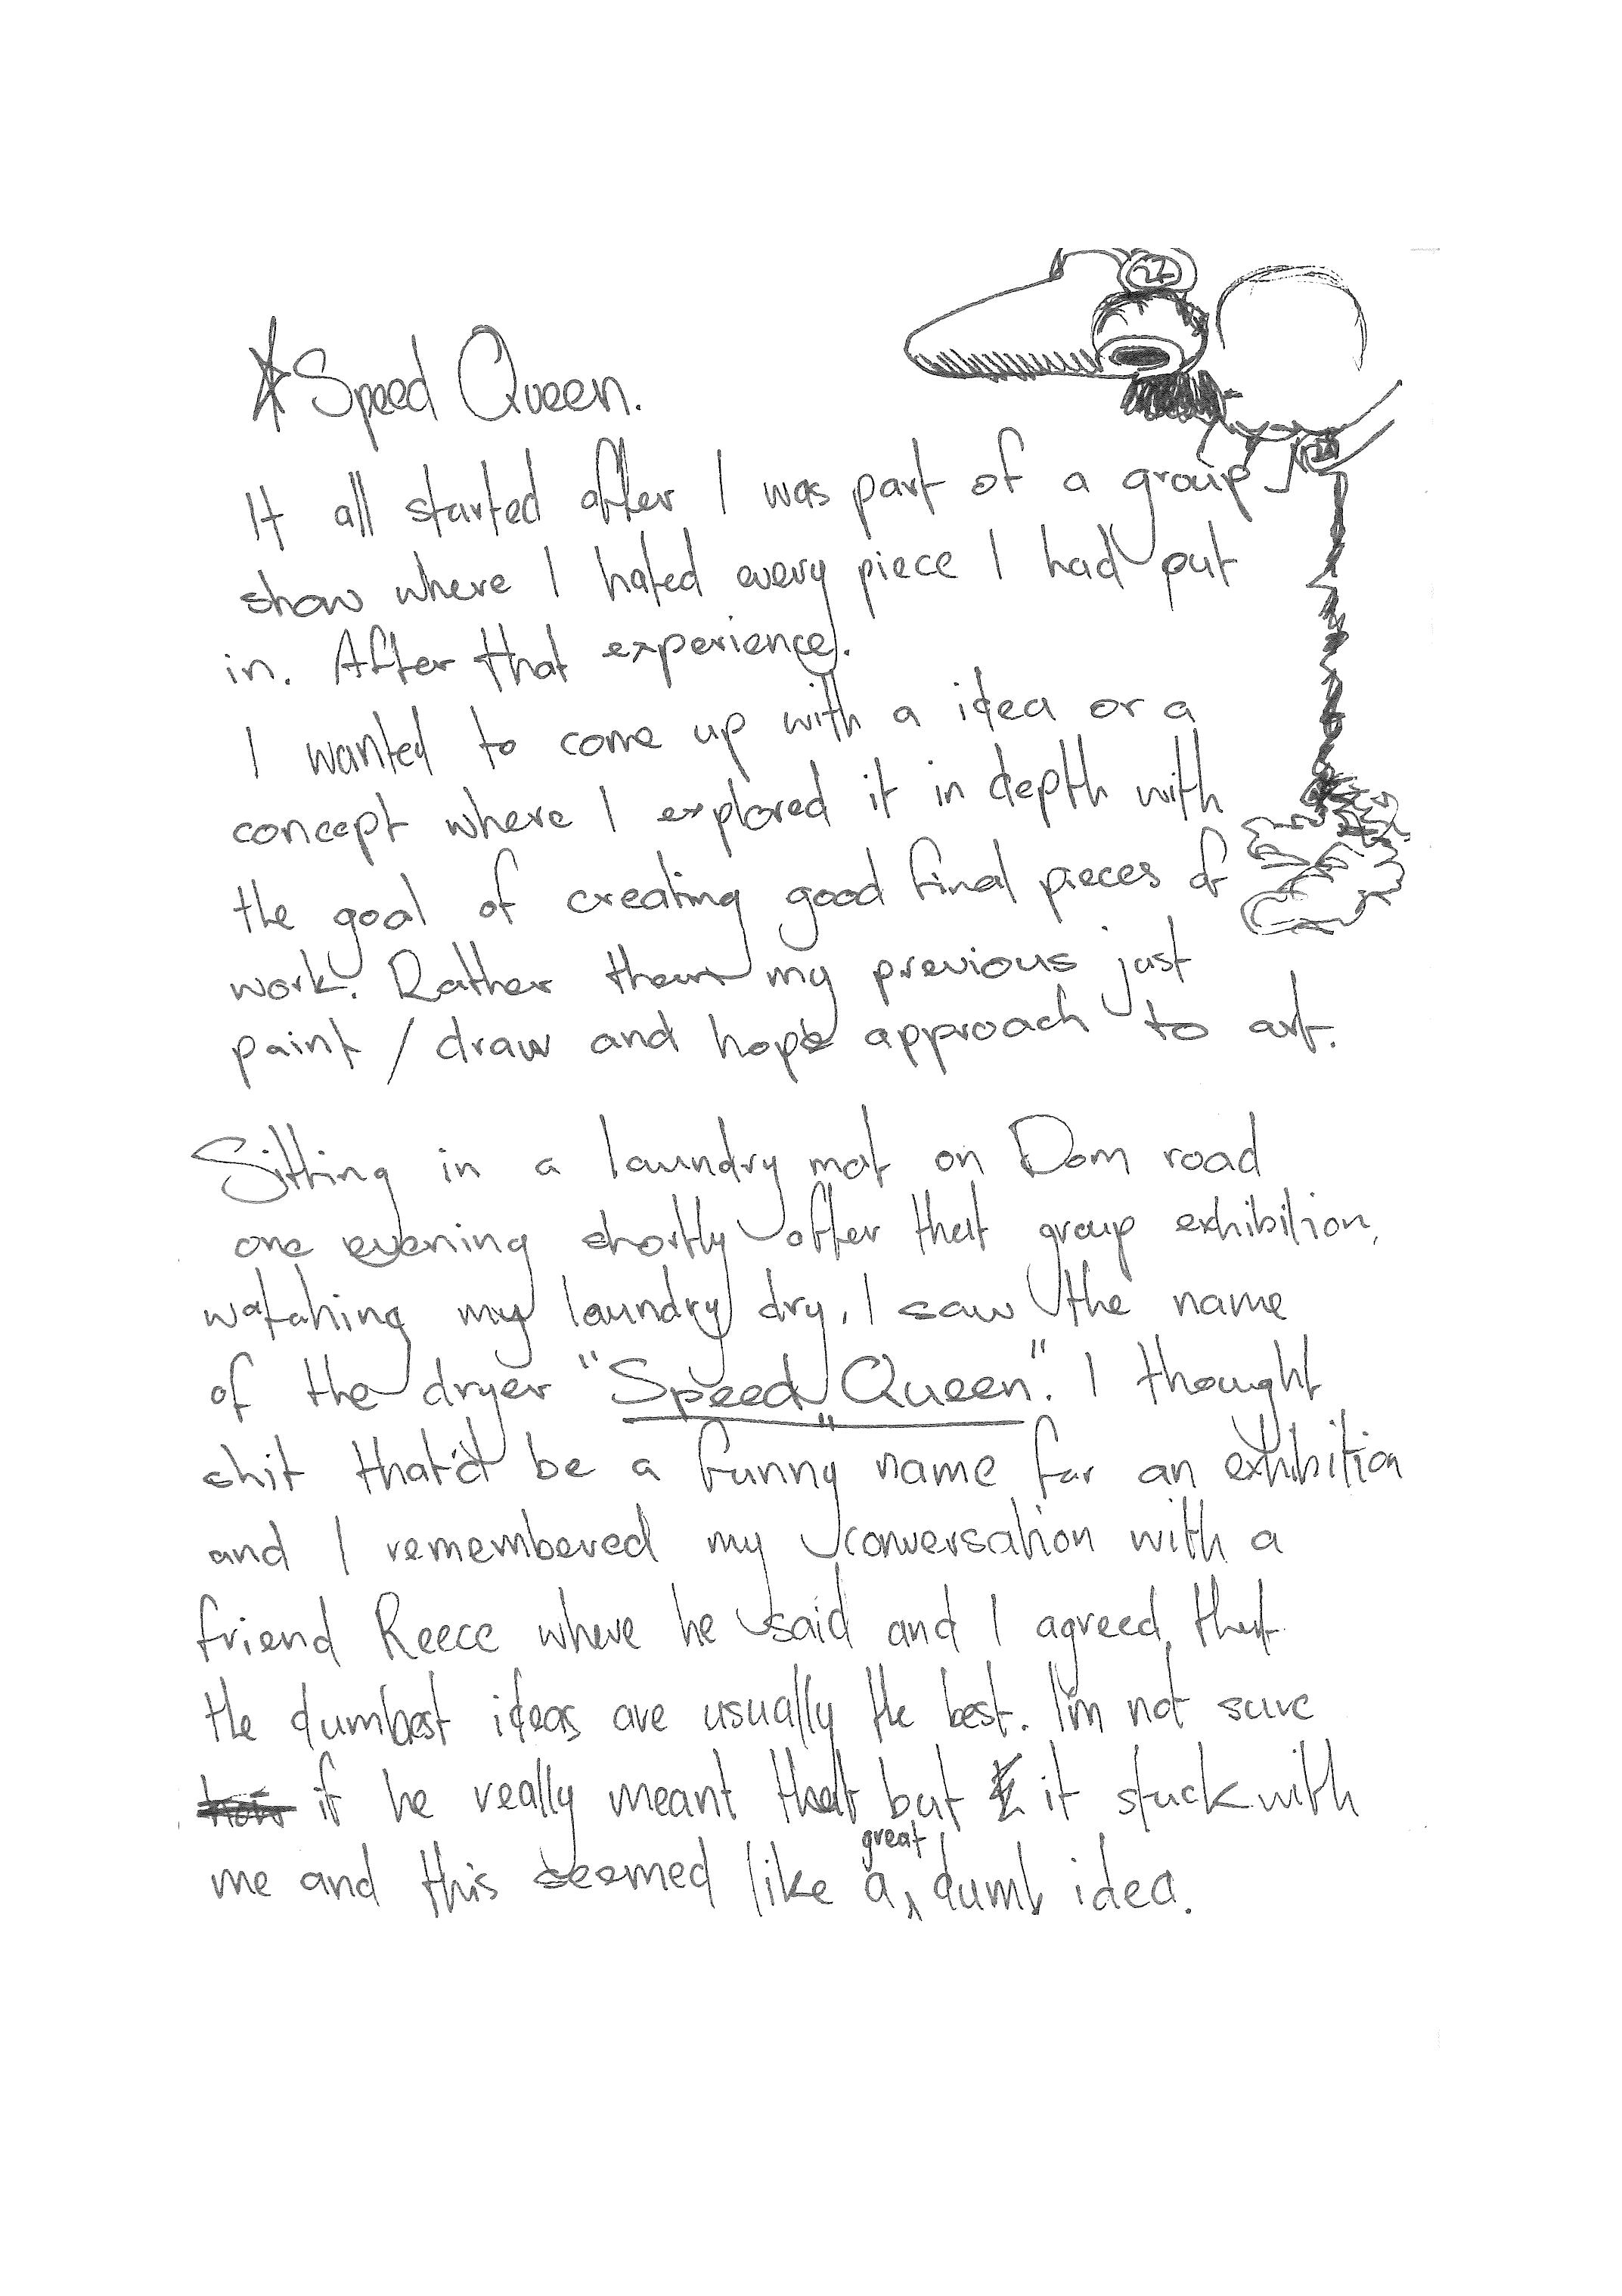 *Speed Queen.
It all started after I was part of a group
show where I hated every piece I had put
in. After that experience.
I wanted to come up with a idea or a
concept where I explored it in depth with
the goal of creating good final pieces of
work. Rather than my previous just
paint / draw and hope approach to art.
Sitting in a laundry mat on Dom road
one evening shortly after that group exhibition,
watching my laundry dry, I saw the name
of the dryer "Speed Queen". I thought
shit that'd be a funny name for an exhibition
and I remembered my conversation with a
friend Reece where he said and I agreed, that
the dumbest ideas are usually the best. I'm not sure
if he really meant that but it stuck with
great
me and this seemed like a dumb idea.